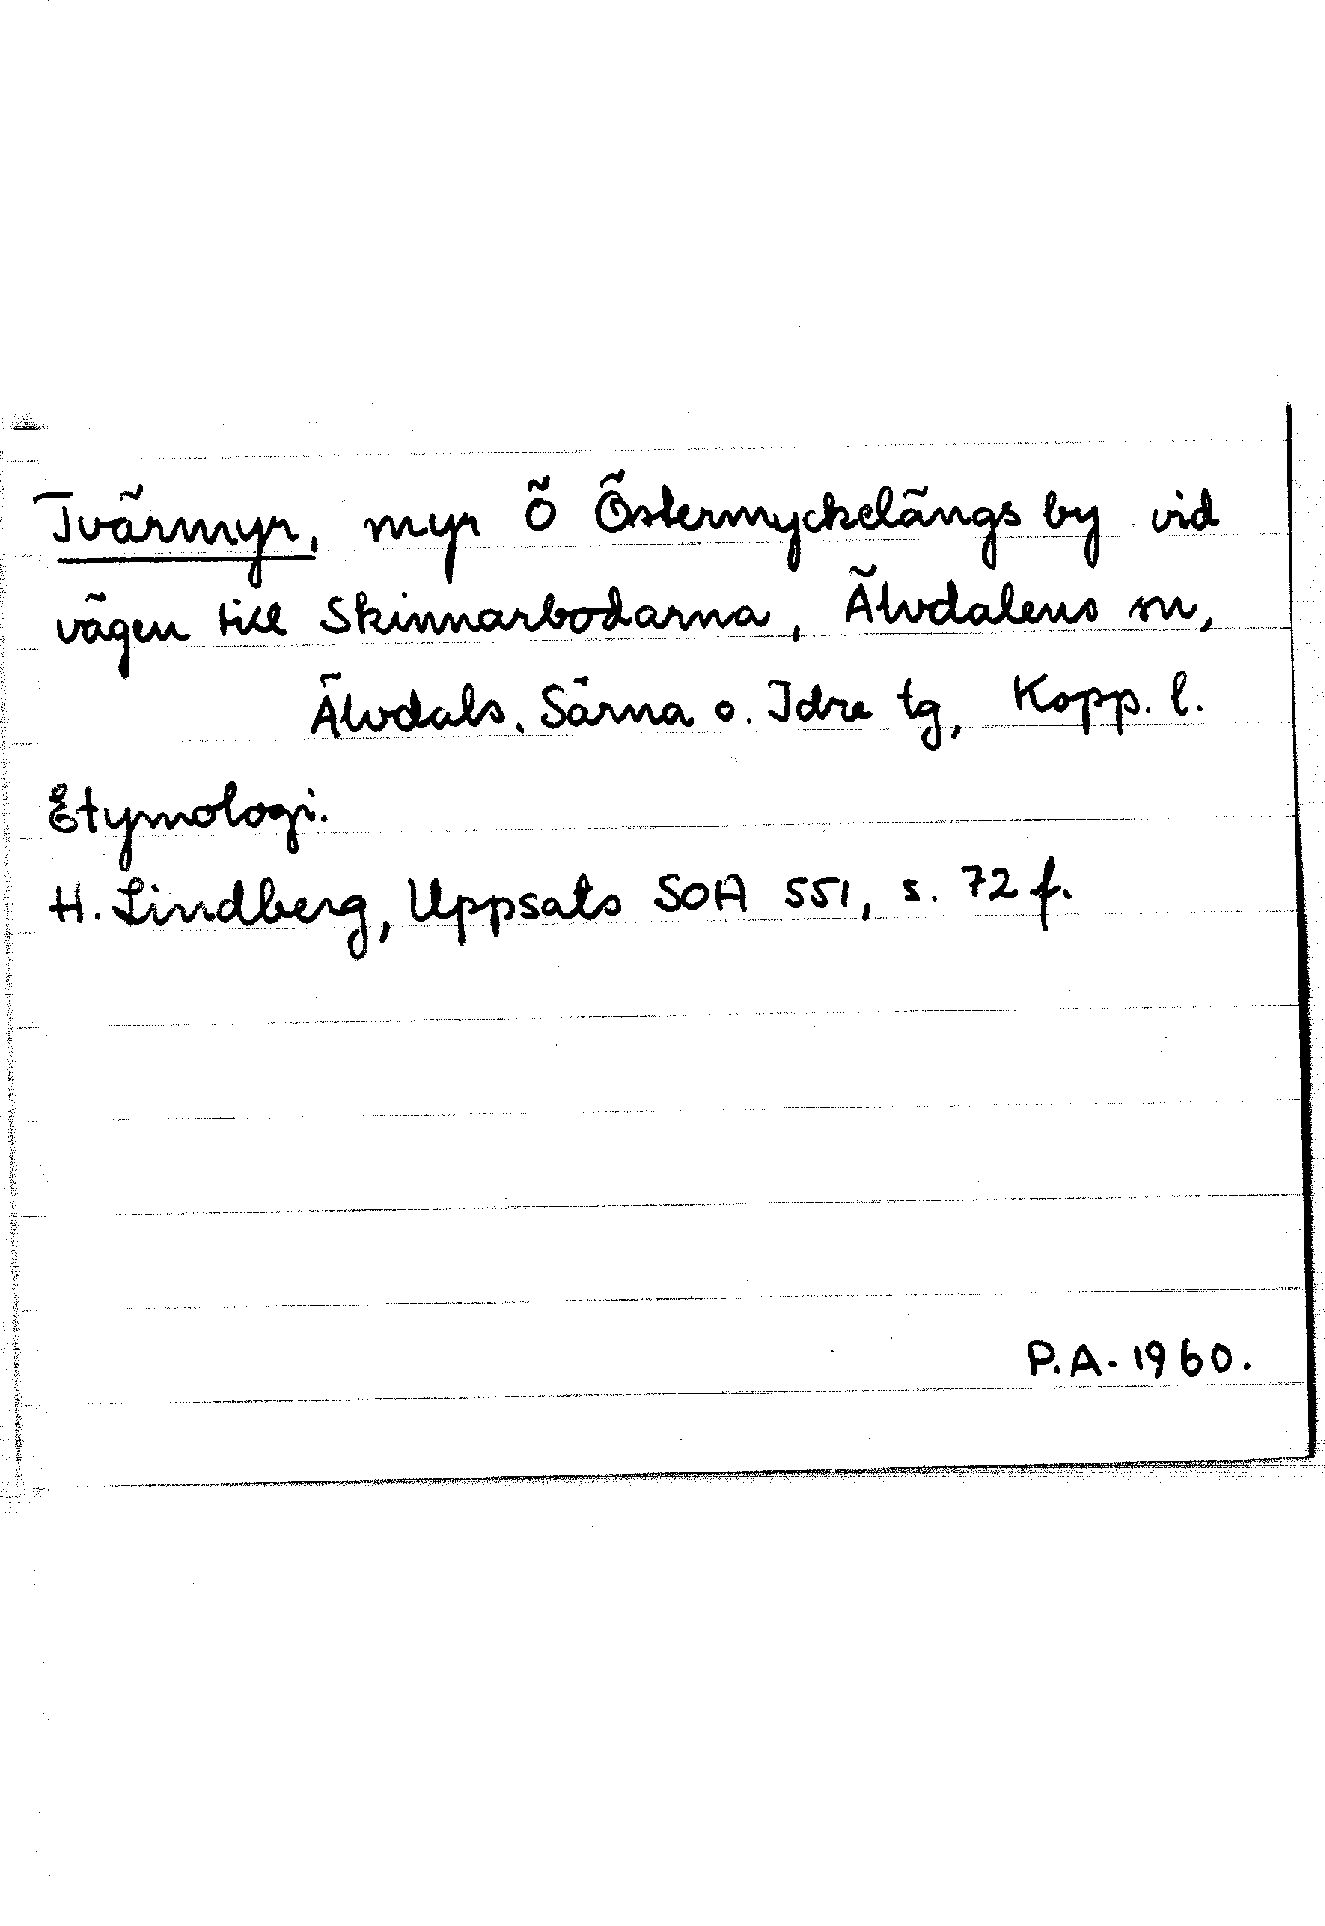 Tvärmyr, myr Ö Östermyckelängs by vid
vägen till Skinnarbodarna, Älvdalens sn,
Älvdals, Särna o. Idre tg, Kopp. l.
Etymologi.
H. Lindberg, Uppsats SOA 551, s. 72 f.
P.A. 1960.